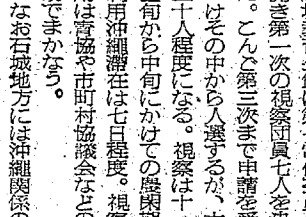 き第一次の視察団員七人を
。こんご第三次まで申請を受
けその中から人選するが、
十人程度になる。視察は十
旬から中旬にかけての農閑期
利用沖縄滞在は七日程度。視察
は青協や市町村協議会などの
でまかなう。
なお石城地方には沖縄関係の